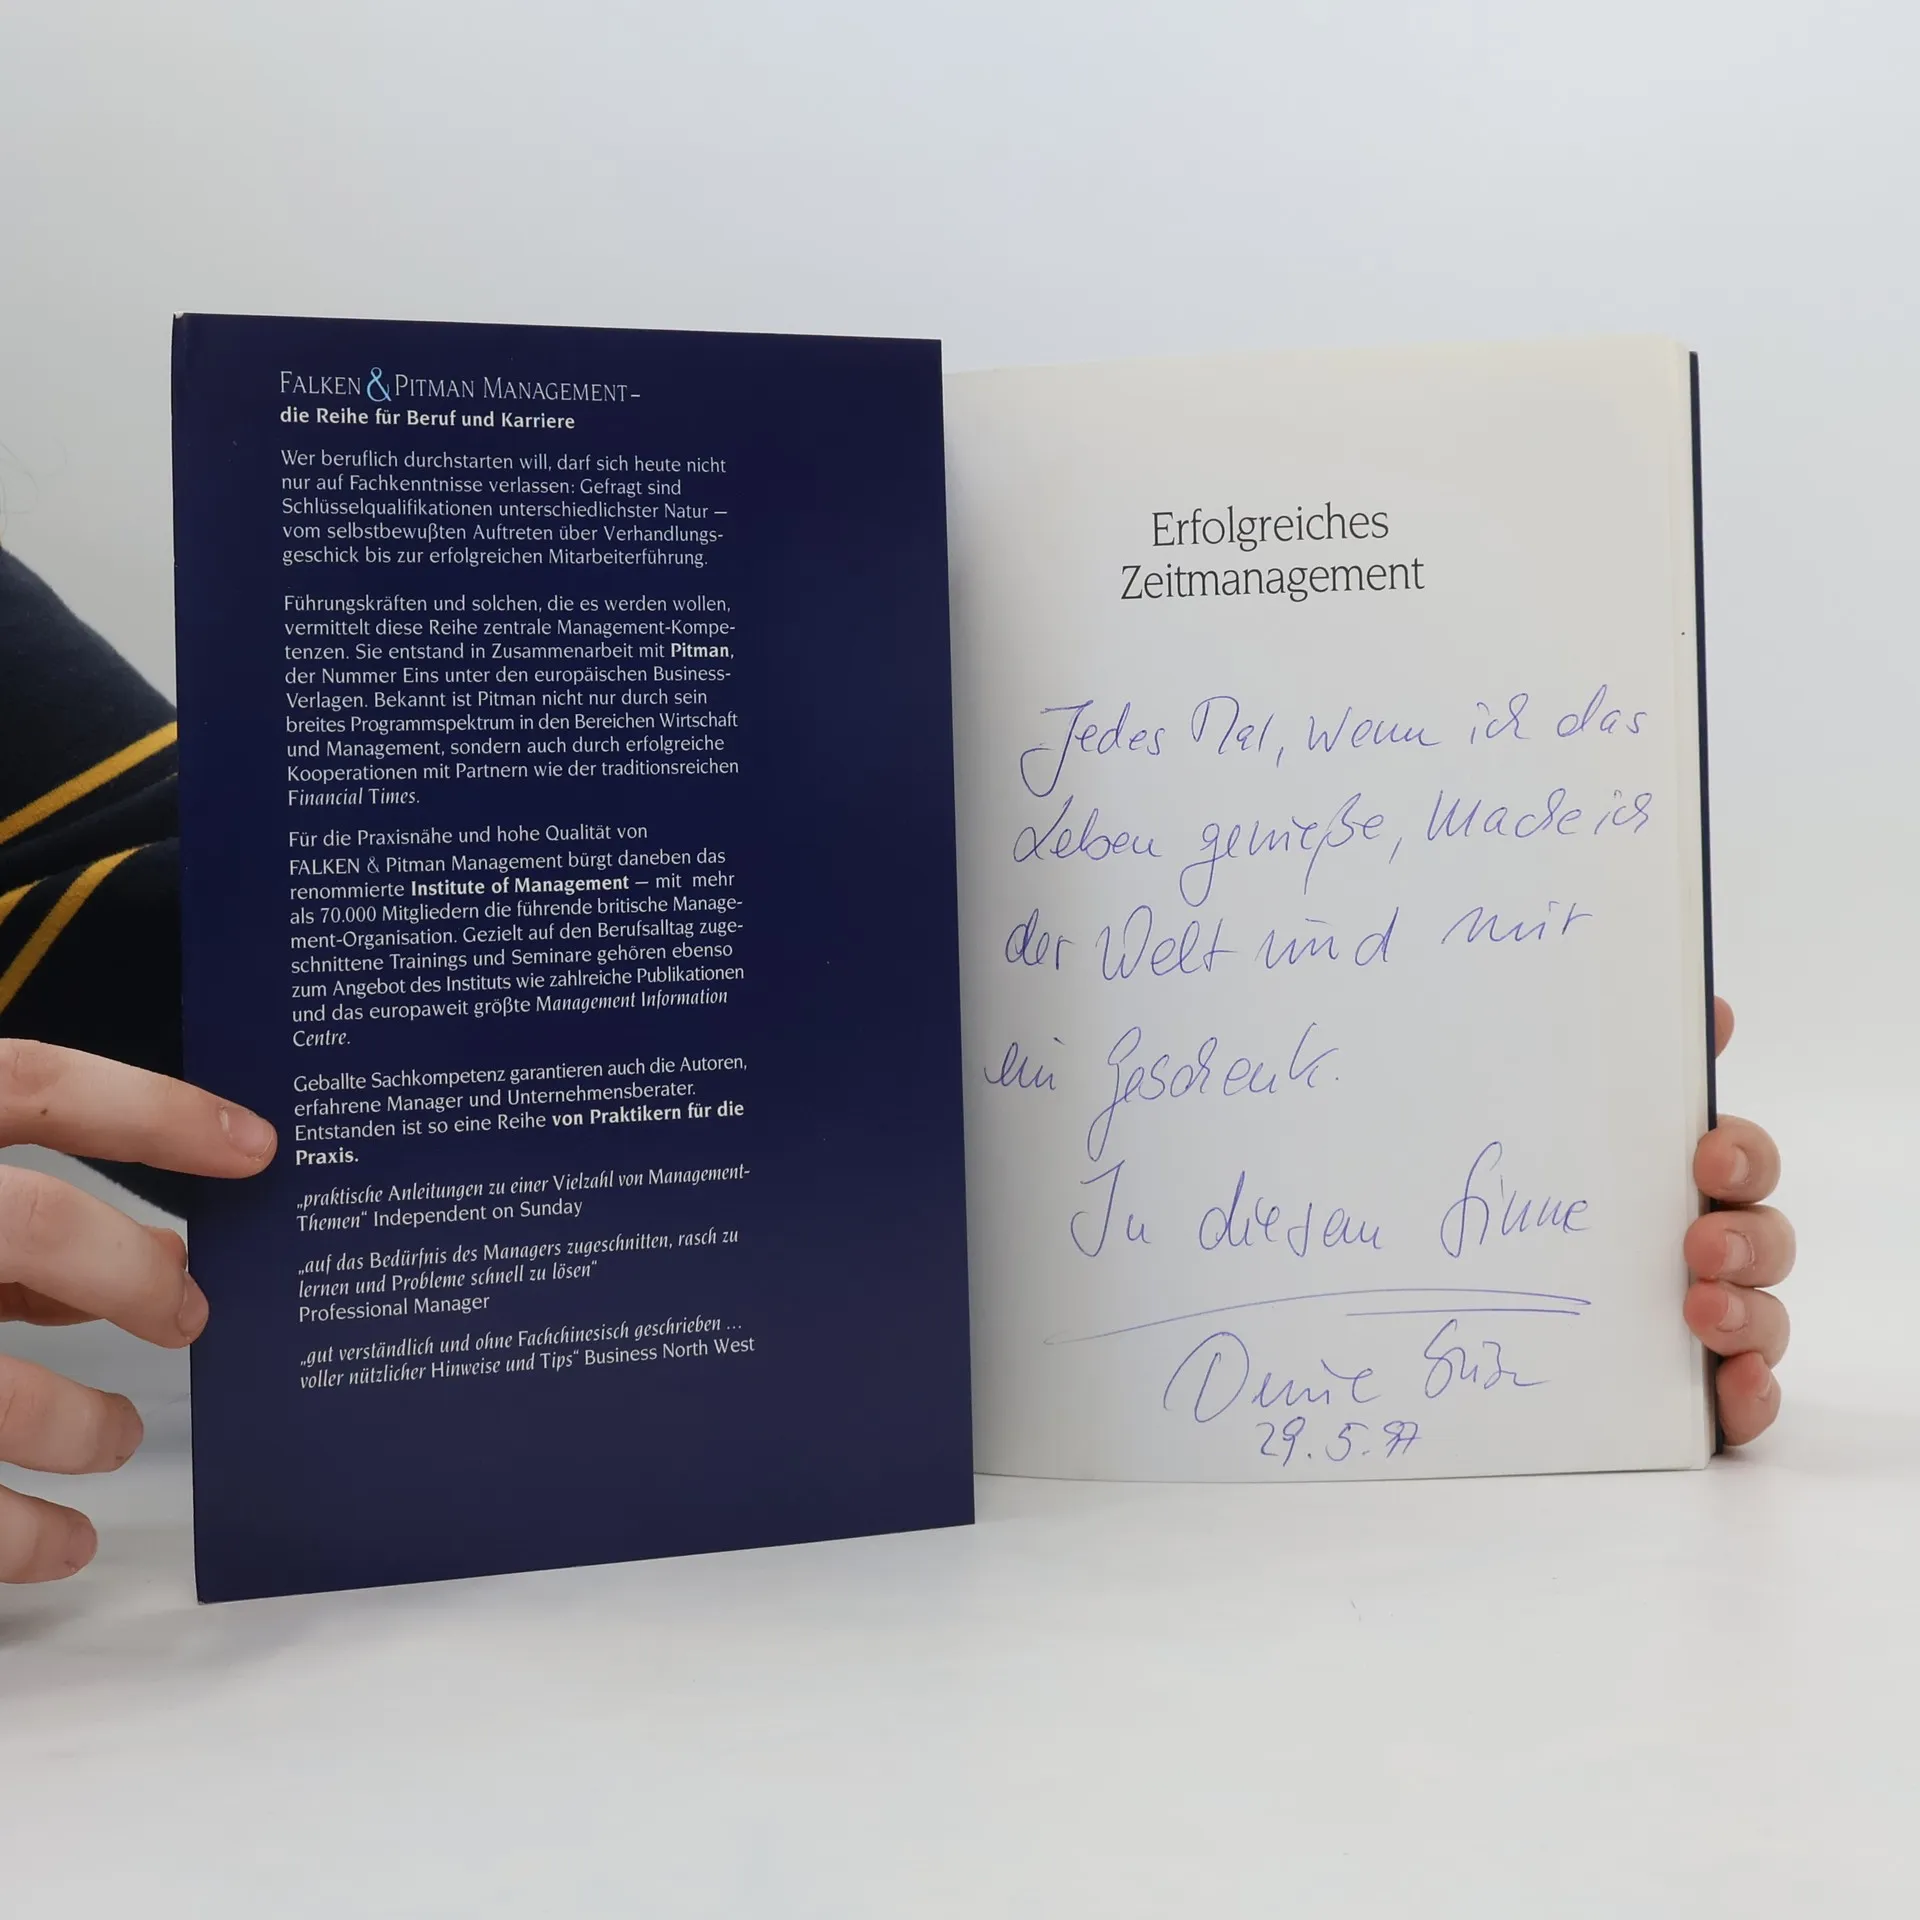 FALKEN & PITMAN MANAGEMENT –
die Reihe für Beruf und Karriere
Wer beruflich durchstarten will, darf sich heute nicht
nur auf Fachkenntnisse verlassen: Gefragt sind
Schlüsselqualifikationen unterschiedlichster Natur –
vom selbstbewußten Auftreten über Verhandlungs-
geschick bis zur erfolgreichen Mitarbeiterführung.
Führungskräften und solchen, die es werden wollen,
vermittelt diese Reihe zentrale Management-Kompe-
tenzen. Sie entstand in Zusammenarbeit mit Pitman,
der Nummer Eins unter den europäischen Business-
Verlagen. Bekannt ist Pitman nicht nur durch sein
breites Programmspektrum in den Bereichen Wirtschaft
und Management, sondern auch durch erfolgreiche
Kooperationen mit Partnern wie der traditionsreichen
Financial Times.
Für die Praxisnähe und hohe Qualität von
FALKEN & Pitman Management bürgt daneben das
renommierte Institute of Management – mit mehr
als 70.000 Mitgliedern die führende britische Manage-
ment-Organisation. Gezielt auf den Berufsalltag zuge-
schnittene Trainings und Seminare gehören ebenso
zum Angebot des Instituts wie zahlreiche Publikationen
und das europaweit größte Management Information
Centre.
Geballte Sachkompetenz garantieren auch die Autoren,
erfahrene Manager und Unternehmensberater.
Entstanden ist so eine Reihe von Praktikern für die
Praxis.
„praktische Anleitungen zu einer Vielzahl von Management-
Themen“ Independent on Sunday
„auf das Bedürfnis des Managers zugeschnitten, rasch zu
lernen und Probleme schnell zu lösen“
Professional Manager
„gut verständlich und ohne Fachchinesisch geschrieben ...
voller nützlicher Hinweise und Tips“ Business North West
Erfolgreiches
Zeitmanagement
Jedes Mal, wenn ich das
Leben genieße, mache ich
der Welt und mir
ein Geschenk.
In diesem Sinne
29. 5. 97